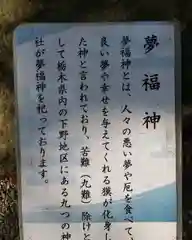 夢福神
夢福神とは、人々の悪い夢や厄を食べて、
良い夢や幸せを与えてくれる獏が化身し
た神と言われており、苦難（九難）除けと
して栃木県内の下野地区にある九つの神
社が夢福神を祀っております。